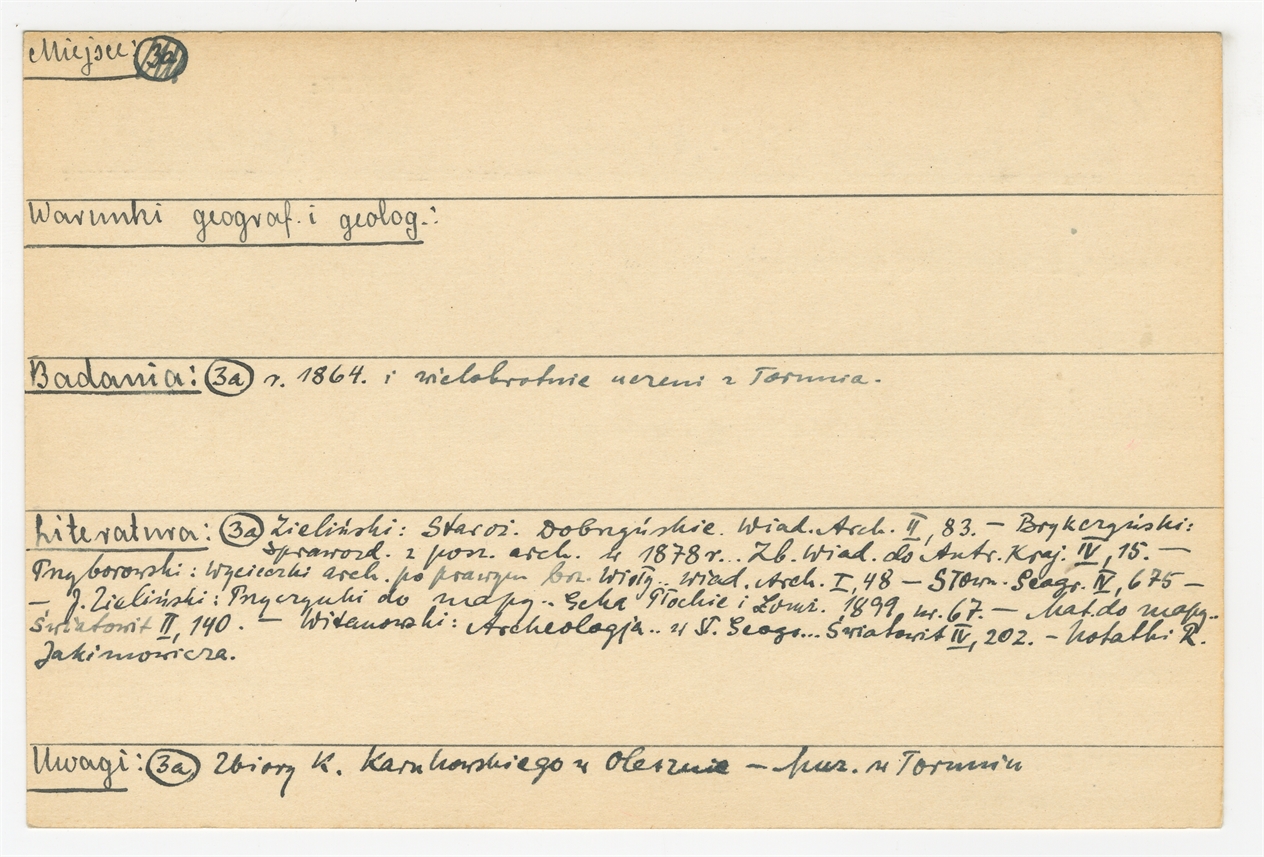 Miejsce: 3a
Warunki geograf. i geolog.:
Badania: 3a r. 1864. i wielokrotnie uczeni z Torunia.
Literatura: 3a Zieliński: Staroż. Dobrzyńskie. Wiad. Arch. II, 83. — Brykczyński:
Sprawozd. z posz. arch. w 1878 r.. Zb. Wiad. do Antr. Kraj. IV, 15. —
Przyborowski: Wycieczki arch. po prawym brz. Wisły.. Wiad. Arch. I, 48 — Słown. Geogr. IV, 675 —
— J. Zieliński: Przyczynki do mapy.. Echa Płockie i Łomż. 1899, nr. 67. — Mat. do mapy..
Światowit II, 140. — Witanowski: Archeologja.. w S. Geogr... Światowit IV, 202. — Notatki R.
Jakimowicza.
Uwagi: 3a Zbiory K. Karnkowskiego w Olesznie — Muz. w Toruniu